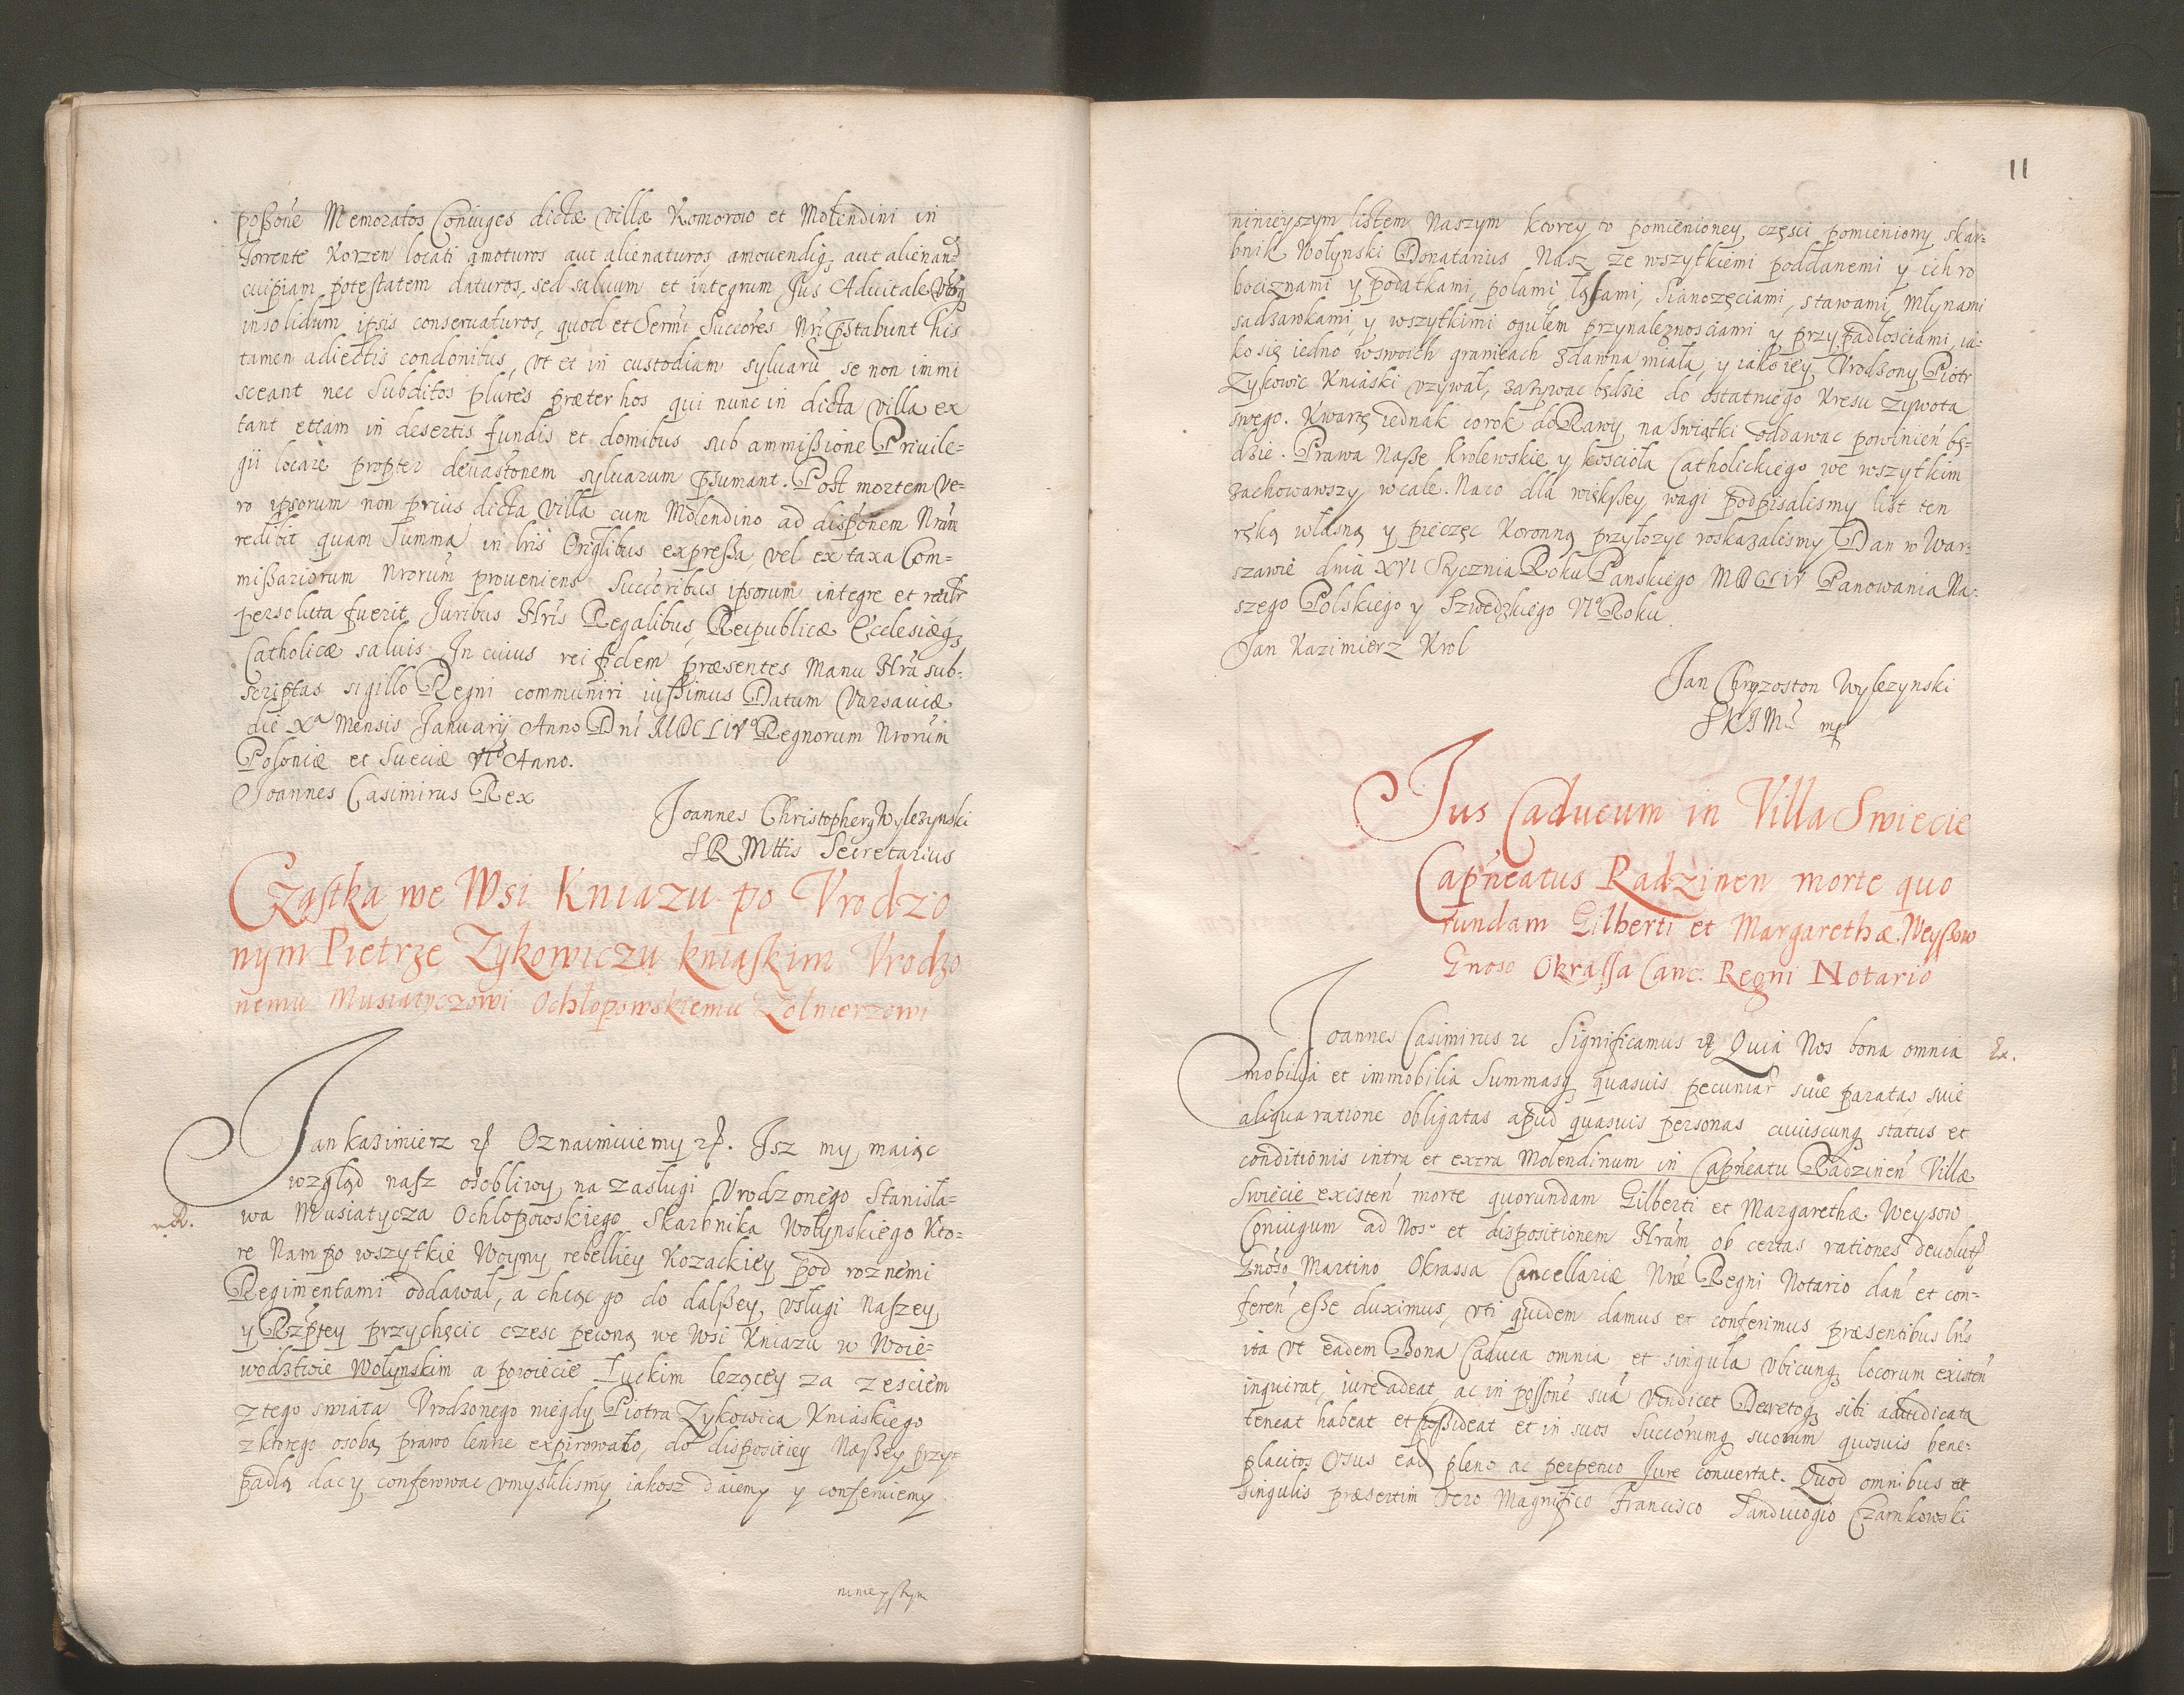 poßone Memoratos Coniuges dictæ villæ Komorowo et Molendini in
Torrente Korzen locati amoturos aut alienaturos, amouendiq, aut alienand
cuipiam potestatem daturos, sed saluum et integrum Jus Aduitale
insolidum ipsis conseruaturos, quod et Sermi Succores Nri pstabunt his
tamen adiectis condonibus, vt et in custodiam syluarũ se non immi
sceant nec Subditos plures præter hos qui nunc in dicta villa ex
tant etiam in desertis fundis et domibus sub ammißione Priuile-
gii locare propter deuastonem syluarum psumant. Post mortem ve-
ro ipsorum non prius dicta villa cum Molendino ad disponem Nram
redibit quam Summa in lris Origlibus expreßa, vel ex taxa Com-
mißariorum Nrorum proueniens Succoribus ipsorum integre et realr
persoluta fuerit, Juribus Nris Regalibus, Reipublicæ Ecclesiæq,
Catholicæ saluis. In cuius rei fidem præsentes Manu Nra sub-
scriptas sigillo Regni communiri iußimus Datum Varsauiæ
die Xa Mensis Januarij Anno Dni MDCLIVo Regnorum Nrorum
Poloniæ et Sueciæ VIo Anno.
Joannes Casimirus Rex
Joannes Christopherg Wylezynski
SRMttis Secretarius
Cząstka we Wsi Kniazu po Vrodzo
nym Pietrze Zykowiczu kniaskim Vrodzo
nemu Musiatyczowi Ochłopowskiemu Zołnierzowi
Jan Kazimierz &c Oznaimuiemy &c. Isz my maiąc
wzgląd nasz osobliwy na zasługi Vrodzonego Stanisła-
wa Musiatycza Ochłopowskiego Skarbnika Wołynskiego Kto-
re Nam po wszytkie Woyny rebelliey Kozackiey pod roznemi
Regimentami oddawał, a chcąc go do dalßey vsługi Naszey
y Rzptey przychęcic czesc pewną we Wsi Kniazu w Woie-
wodztwie Wołynskim a powiecie Łuckim lezącey za zesciem
z tego swiata Vrodzonego niegdy Piotra Zykowica Kniaskiego
z ktorego osobą prawo lenne expirowało, do dispositiey Naßey przy-
padłą dac y conferowac vmyslilismy iakosz daiemy y conferuiemy
ninieyszym
11
ninieyszym listem Naszym ktorey to pomienioney częsci pomieniony skar-
bnik Wołynski Donatarius Nasz ze wszytkiemi poddanemi y ich ro
bociznami y podatkami, polami, łąkami, Sianozęciami, stawami, Młynami
sadzawkami, y wszytkimi ogułem przynaleznosciami y przypadłosciami, ia-
ko się iedno wswoich granicach zdawna miała, y iako iey Vrodzony Piotr
Zykowic Kniaski vzywał, zazywac będzie do ostatniego Kresu Zywota
swego. Kwartę iednak corok do Rawy na Swiątki oddawac powinien bę-
dzie. Prawa Naße Krolewskie y koscioła Catholickiego we wszytkim
zachowawszy wcale. Naco dla więkßey wagi podpisalismy list ten
ręką własną y pieczęc Koronną przyłozyc roskazalismy Dan w War-
szawie dnia XVI Stycznia Roku Panskiego MDCLIV Panowania Na-
szego Polskiego y Szwedzkiego VIo Roku.
Jan Kazimierz Krol
Jan Chryzoston Wylezynski
SKJMci mp
Jus Caducum in Villa Swiecie
Capneatus Radzinen morte quo
rundam Gilberti et Margarethæ Weyßow
Gnoso Okrassa Canc: Regni Notario
Joannes Casimirus &c Significamus &c Quia Nos bona omnia
Ex.
mobilia et immobilia Summasq, quasuis pecuniar siue paratas, siue
aliqua ratione obligatas apud quasuis personas cuiuscunq status et
conditionis intra et extra Molendinum in Capneatu Radzinen Villa
Swiecie existen morte quorundam Gilberti et Margarethæ Weysow
Coniugum ad Nos et dispositionem Nram ob certas rationes deuolut
Gnoso Martino Okrassa Cancellariæ Nræ Regni Notario dan et con-
feren eße duximus, vti quidem damus et conferimus præsentibus lris
ita vt eadem Bona Caduca omnia et singula vbicunq locorum existen
inquirat, iure adeat, ac in poßone sua vendicet Decretoq sibi adiudicata
teneat habeat et poßideat et in suos Succorumq suorum quosuis bene-
placitos vsus ead pleno ac perpetuo Jure conuertat. Quod omnibus et
singulis præsertim vero Magnifico Francisco Sandiuogio Czarnkowski